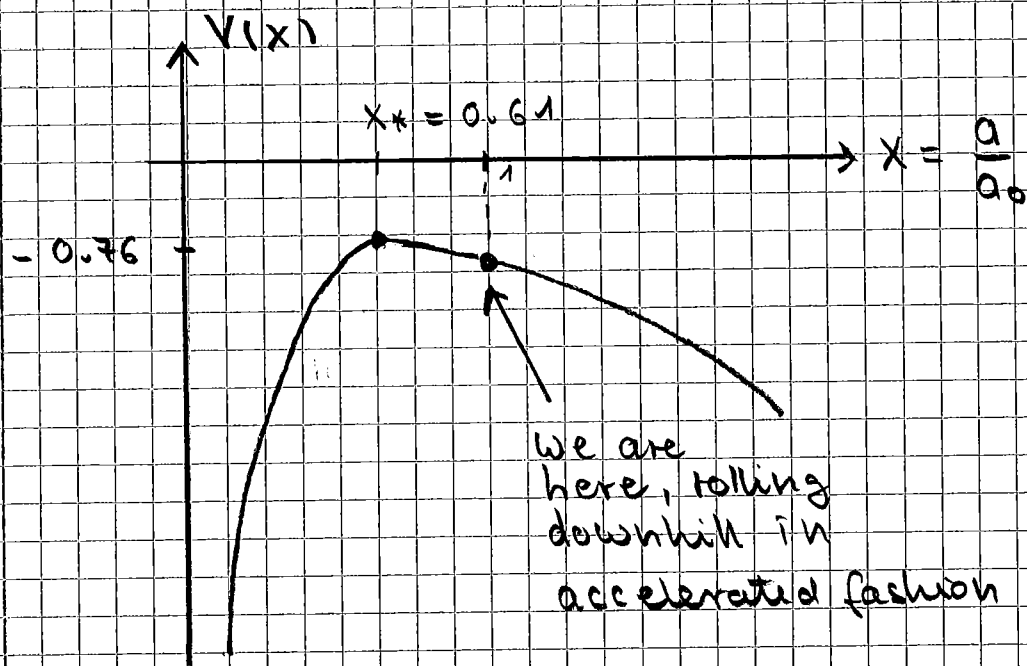 V(x)
x* = 0.61
1
x = a/a₀
- 0.76
we are
here, rolling
downhill in
accelerated fashion